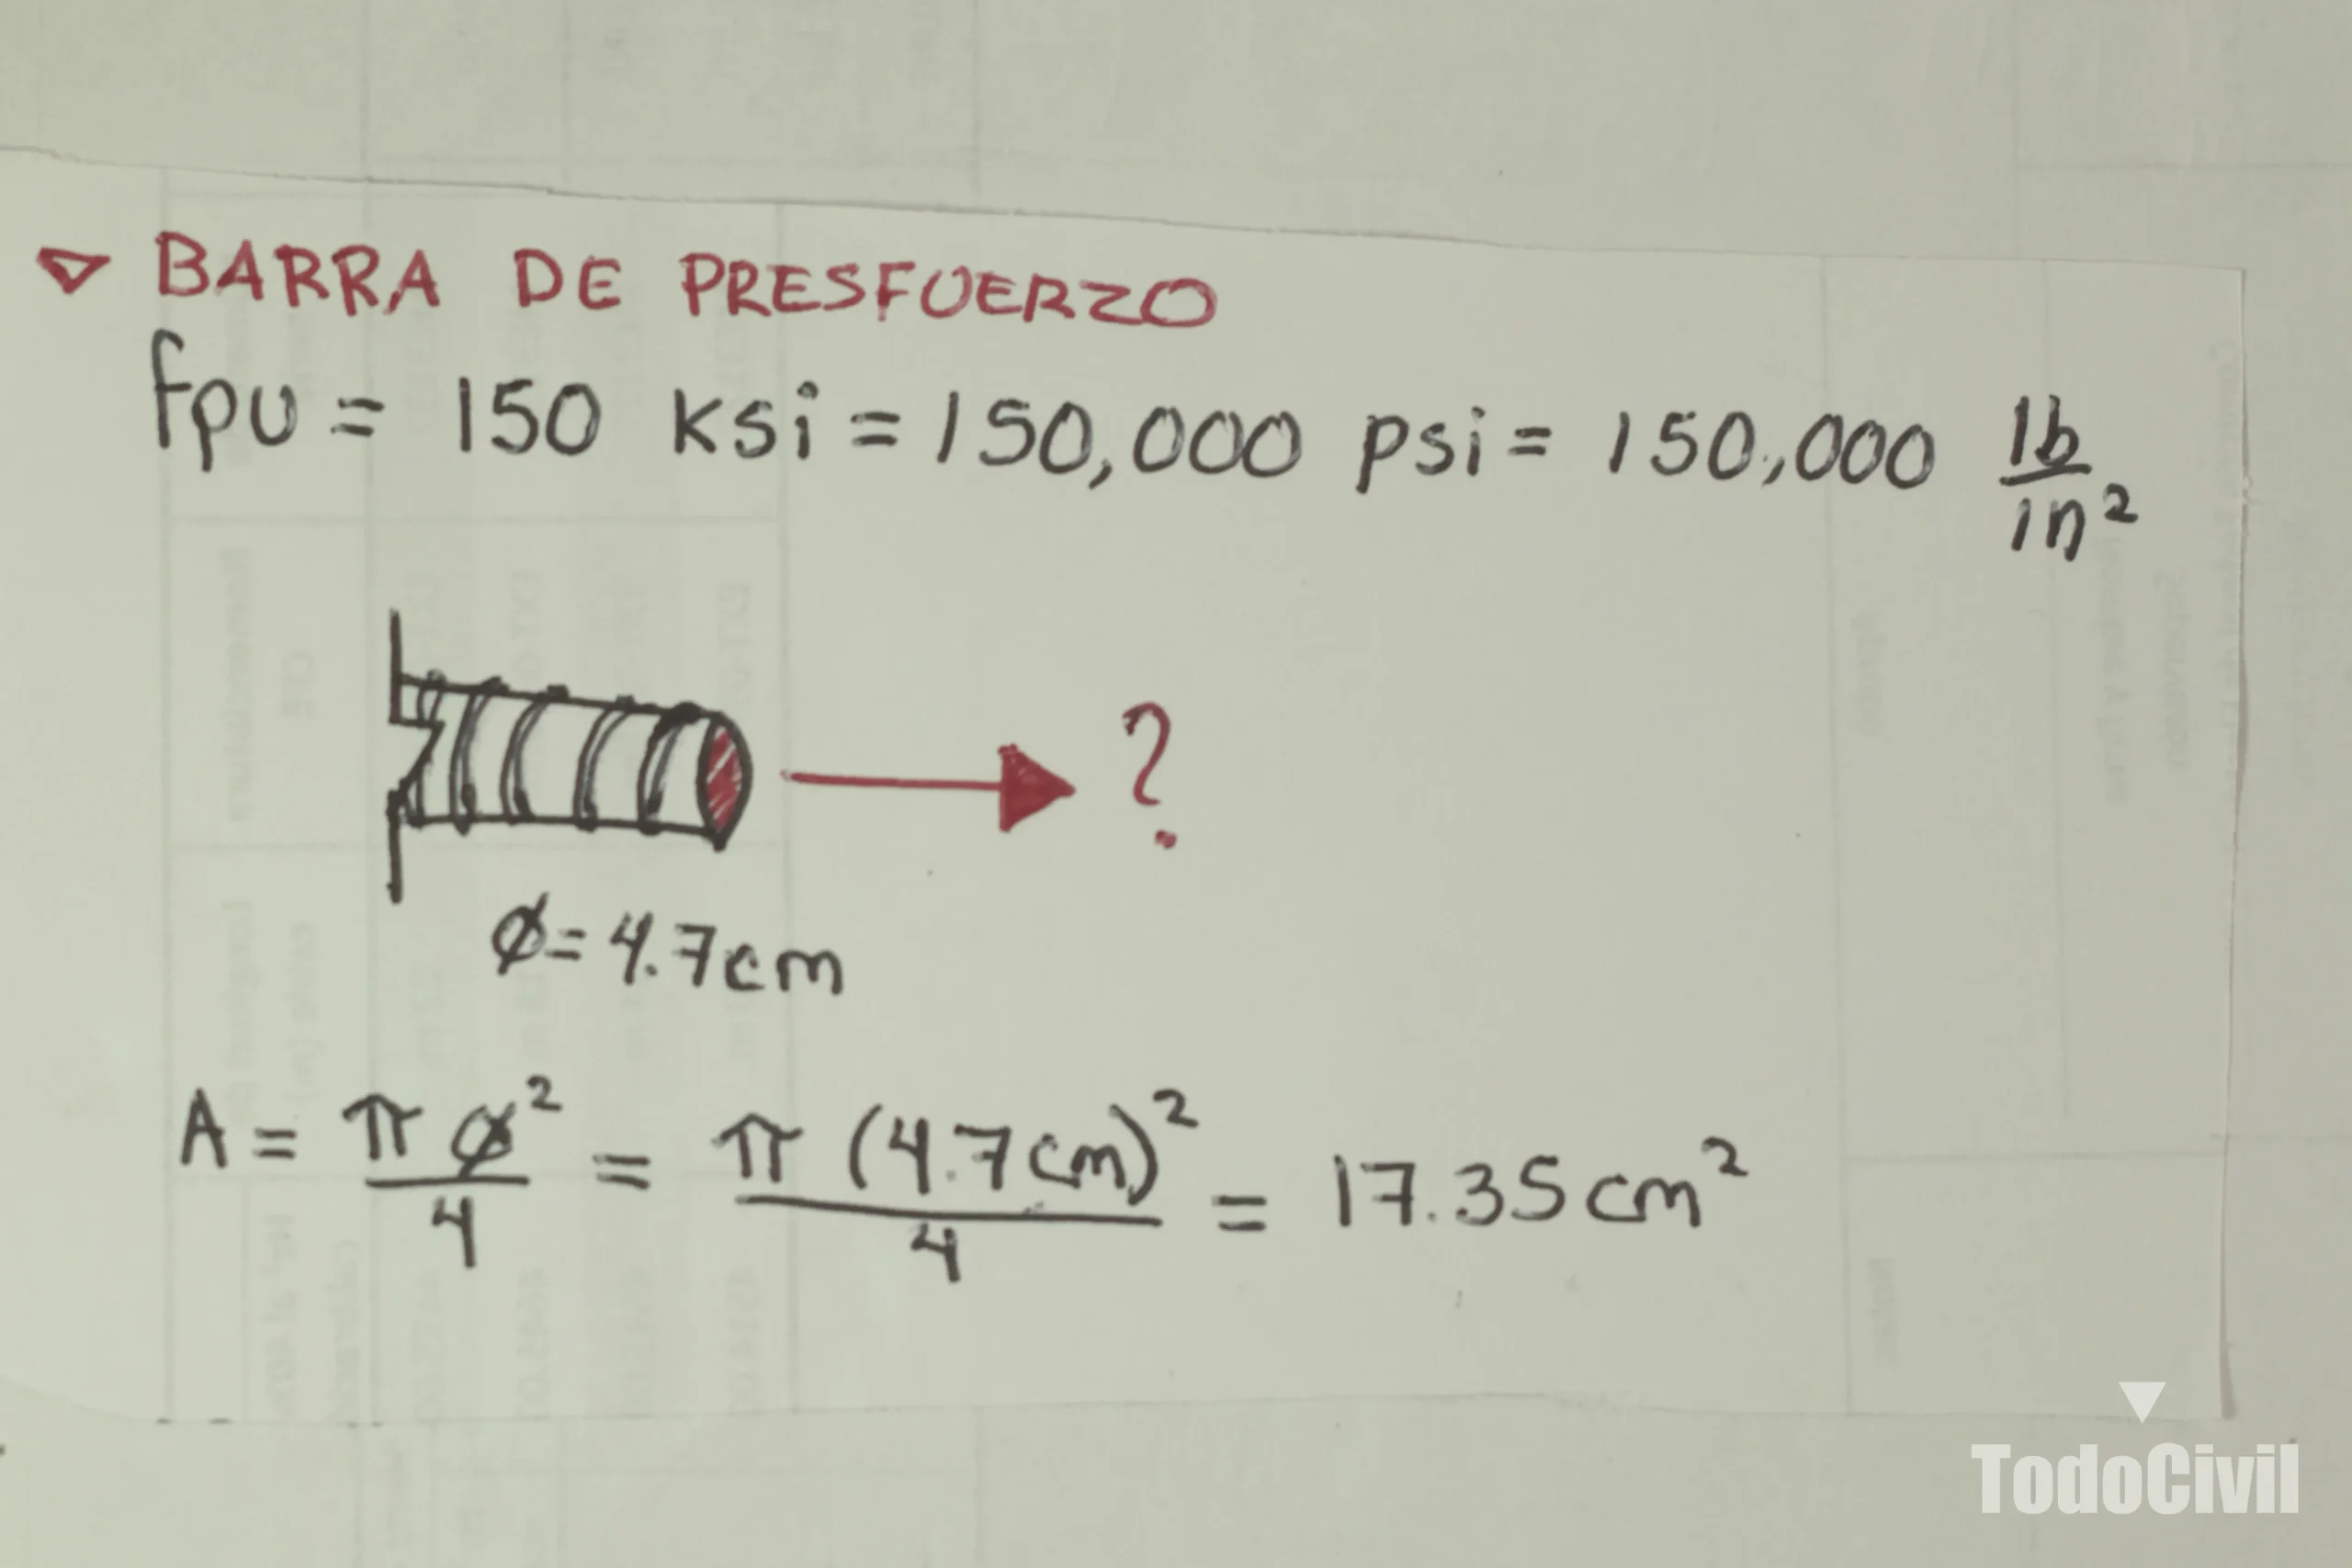 ▽ BARRA DE PRESFUERZO
fpu = 150 ksi = 150,000 psi = 150,000 lb/in²
?
Ø = 4.7cm
A = π Ø²/4 = π (4.7cm)²/4 = 17.35 cm²
TodoCivil